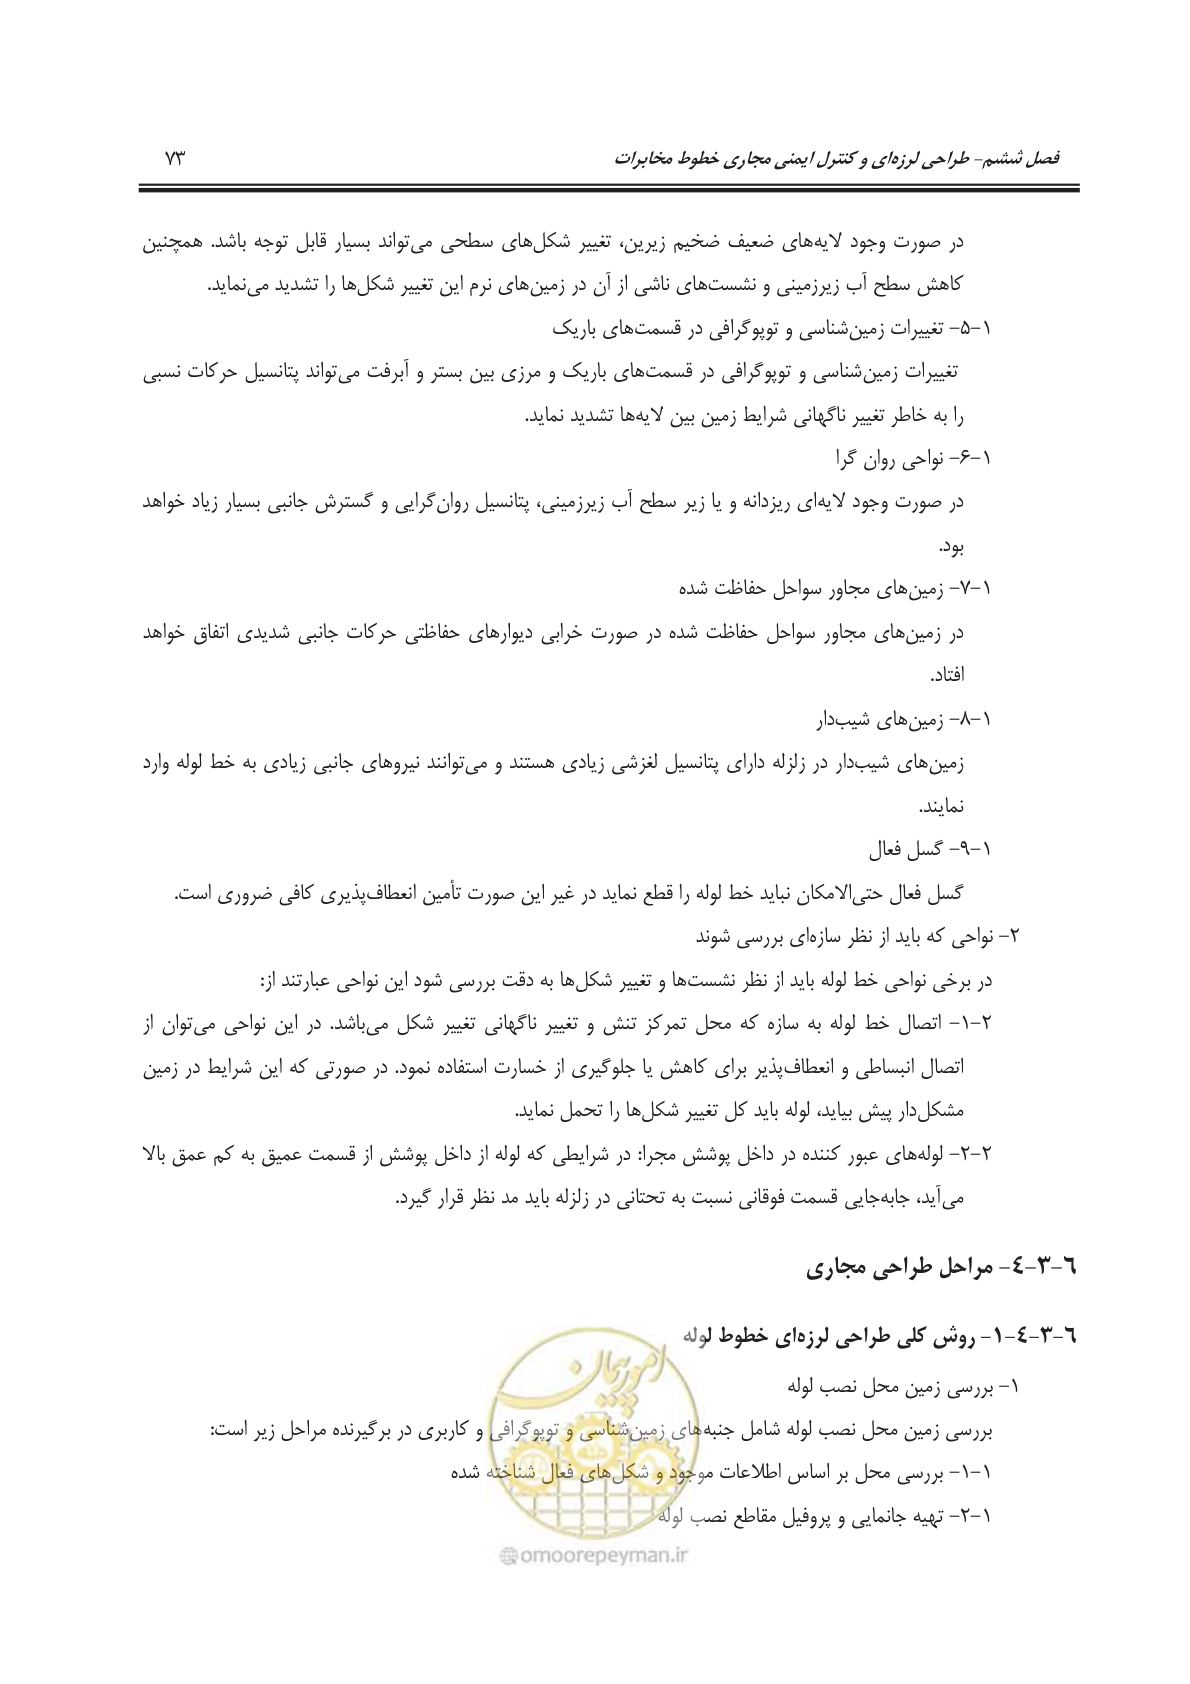 فصل ششم- طراحی لرزه‌ای و کنترل ایمنی مجاری خطوط مخابرات ۷۳
در صورت وجود لایه‌های ضعیف ضخیم زیرین، تغییر شکل‌های سطحی می‌تواند بسیار قابل توجه باشد. همچنین
کاهش سطح آب زیرزمینی و نشست‌های ناشی از آن در زمین‌های نرم این تغییر شکل‌ها را تشدید می‌نماید.
۱-۵- تغییرات زمین‌شناسی و توپوگرافی در قسمت‌های باریک
تغییرات زمین‌شناسی و توپوگرافی در قسمت‌های باریک و مرزی بین بستر و آبرفت می‌تواند پتانسیل حرکات نسبی
را به خاطر تغییر ناگهانی شرایط زمین بین لایه‌ها تشدید نماید.
۱-۶- نواحی روان گرا
در صورت وجود لایه‌ای ریزدانه و یا زیر سطح آب زیرزمینی، پتانسیل روان‌گرایی و گسترش جانبی بسیار زیاد خواهد
بود.
۱-۷- زمین‌های مجاور سواحل حفاظت شده
در زمین‌های مجاور سواحل حفاظت شده در صورت خرابی دیوارهای حفاظتی حرکات جانبی شدیدی اتفاق خواهد
افتاد.
۱-۸- زمین‌های شیب‌دار
زمین‌های شیب‌دار در زلزله دارای پتانسیل لغزشی زیادی هستند و می‌توانند نیروهای جانبی زیادی به خط لوله وارد
نمایند.
۱-۹- گسل فعال
گسل فعال حتی‌الامکان نباید خط لوله را قطع نماید در غیر این صورت تأمین انعطاف‌پذیری کافی ضروری است.
۲- نواحی که باید از نظر سازه‌ای بررسی شوند
در برخی نواحی خط لوله باید از نظر نشست‌ها و تغییر شکل‌ها به دقت بررسی شود این نواحی عبارتند از:
۲-۱- اتصال خط لوله به سازه که محل تمرکز تنش و تغییر ناگهانی تغییر شکل می‌باشد. در این نواحی می‌توان از
اتصال انبساطی و انعطاف‌پذیر برای کاهش یا جلوگیری از خسارت استفاده نمود. در صورتی که این شرایط در زمین
مشکل‌دار پیش بیاید، لوله باید کل تغییر شکل‌ها را تحمل نماید.
۲-۲- لوله‌های عبور کننده در داخل پوشش مجرا: در شرایطی که لوله از داخل پوشش از قسمت عمیق به کم عمق بالا
می‌آید، جابه‌جایی قسمت فوقانی نسبت به تحتانی در زلزله باید مد نظر قرار گیرد.
۶-۳-۴- مراحل طراحی مجاری
۶-۳-۴-۱- روش کلی طراحی لرزه‌ای خطوط لوله
۱- بررسی زمین محل نصب لوله
بررسی زمین محل نصب لوله شامل جنبه‌های زمین‌شناسی و توپوگرافی و کاربری در برگیرنده مراحل زیر است:
۱-۱- بررسی محل بر اساس اطلاعات موجود و شکل‌های فعال شناخته شده
۱-۲- تهیه جانمایی و پروفیل مقاطع نصب لوله
امور پیمان
@omoorepeyman.ir